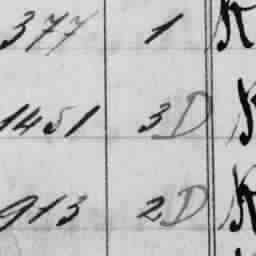 377 1 K
1451 3 D K
913 2 D K